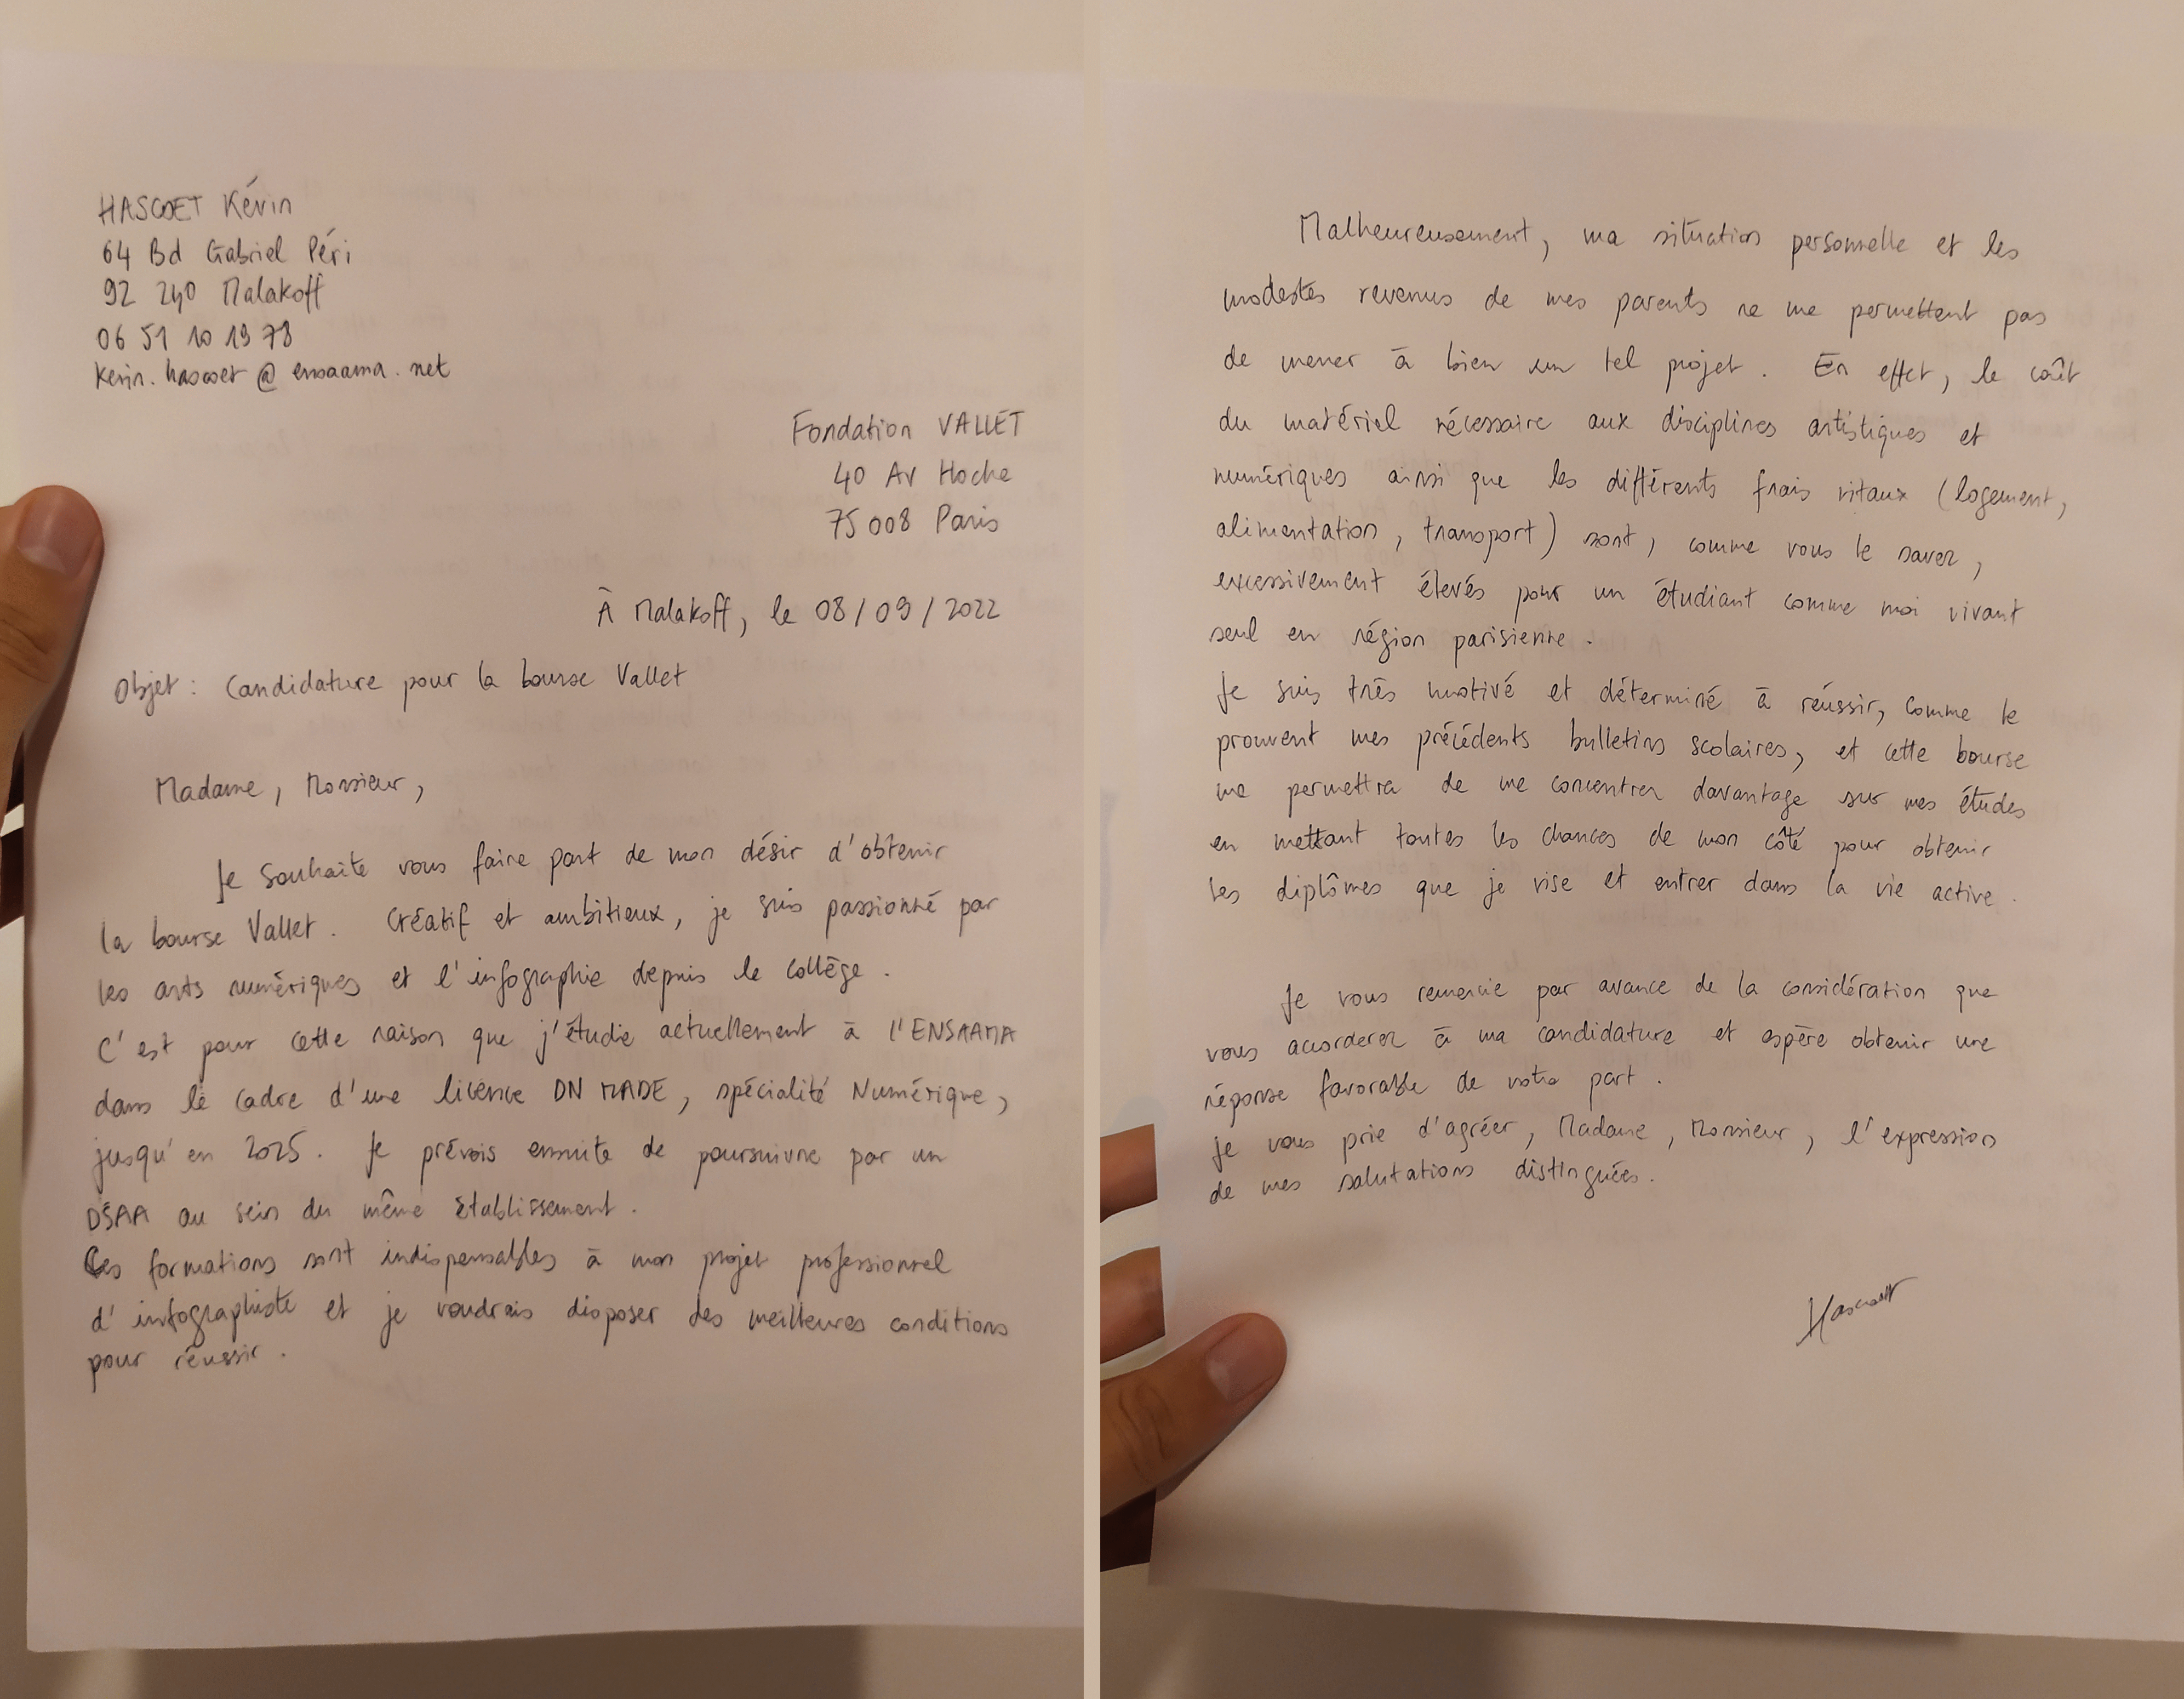 HASCOET Kévin
64 Bd Gabriel Péri
92 240 Malakoff
06 51 10 19 78
kevin.hascoet @ ensaama.net
Fondation VALLET
40 Av Hoche
75 008 Paris
À Malakoff, le 08/09/2022
Objet : Candidature pour la bourse Vallet
Madame, Monsieur,
Je souhaite vous faire part de mon désir d'obtenir
la bourse Vallet. Créatif et ambitieux, je suis passionné par
les arts numériques et l'infographie depuis le collège.
C'est pour cette raison que j'étudie actuellement à l'ENSAAMA
dans le cadre d'une licence DN MADE, spécialité Numérique,
jusqu'en 2025. Je prévois ensuite de poursuivre par un
DSAA au sein du même établissement.
Ces formations sont indispensables à mon projet professionnel
d'infographiste et je voudrais disposer des meilleures conditions
pour réussir.
Malheureusement, ma situation personnelle et les
modestes revenus de mes parents ne me permettent pas
de mener à bien un tel projet. En effet, le coût
du matériel nécessaire aux disciplines artistiques et
numériques ainsi que les différents frais vitaux (logement,
alimentation, transport) sont, comme vous le savez,
excessivement élevés pour un étudiant comme moi vivant
seul en région parisienne.
Je suis très motivé et déterminé à réussir, comme le
prouvent mes précédents bulletins scolaires, et cette bourse
me permettra de me concentrer davantage sur mes études
en mettant toutes les chances de mon côté pour obtenir
les diplômes que je vise et entrer dans la vie active.
Je vous remercie par avance de la considération que
vous accorderez à ma candidature et espère obtenir une
réponse favorable de votre part.
Je vous prie d'agréer, Madame, Monsieur, l'expression
de mes salutations distinguées.
Hascoët